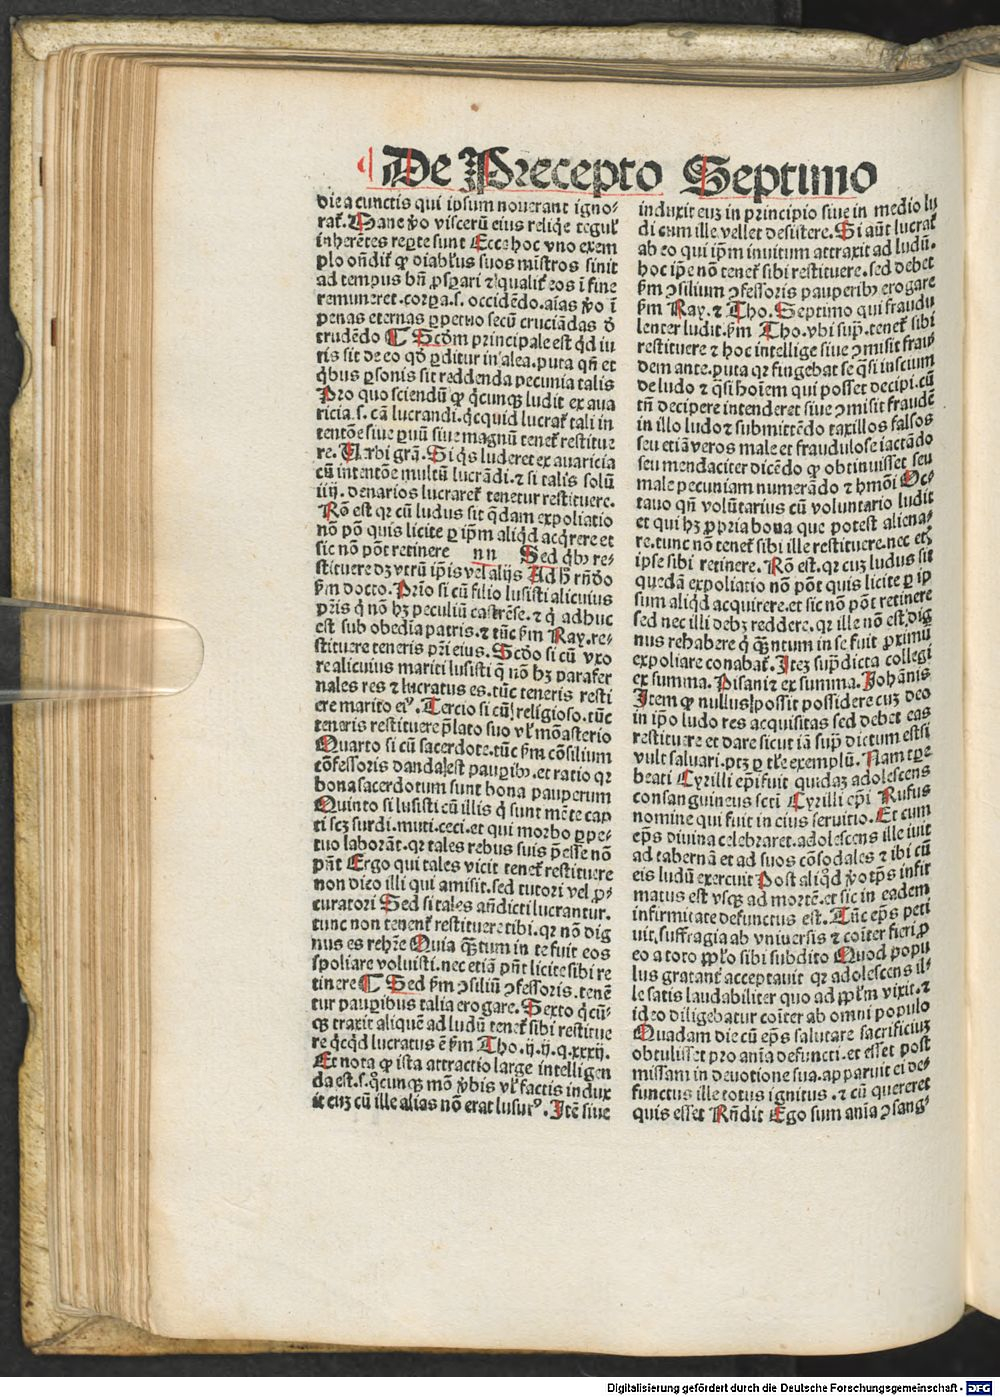 De Precepto Septimo
die a cunctis qui ipsum nouerant igno-
rat᷑. Sane ꝟo viscerū eius reliqͥe tegul᷑
inherētes reꝑte sunt Ecce hoc vno exem
plo oñdit᷑ ꝙ diabl᷑us suos mīstros sinit
ad tempus bn̄ ꝓsꝑari ⁊ qualit᷑ eos ī fine
remuneret. corꝑa .s. occidēdo. aīas ꝟo ī
penas eternas ꝑpetuo secū cruciādas
trudēdo ¶ Scḋm principale est qͥd iu
ris sit de eo qḋ ꝑditur in alea. puta qn̄ et
qͥbus ꝑsonis sit reddenda pecunia talis
Pro quo sciendū ꝙ qͥcunqꝫ ludit ex aua
ricia .s. cā lucrandi. qͥcquid lucrat᷑ tali in
tentōe siue ꝑuū siue magnū tenet᷑ restitue
re. Uerbi grā. Si qͥs luderet ex auaricia
cū intentōe multū lucrādi. ⁊ si talis solū
iiij. denarios lucraret᷑ tenetur restituere.
Rō est qꝛ cū ludus sit qͥdam expoliatio
nō pō quis licite ꝑ ip̄m aliqͥd acqͥrere et
sic nō pōt retinere nn Sed qͥbꝫ re-
stituere dꝫ vtrū ip̄is vel alijs Ad h̄ rn̄do
ẜm docto. Prīo si cū filio lusisti alicuius
pr̄is qͥ nō hꝫ peculiū castrēse. ⁊ qͥ adhuc
est sub obediā patris. ⁊ tūc ẜm Ray. re-
stituere teneris pr̄i eius. Scḋo si cū vxo
re alicuius mariti lusisti q̄ nō hꝫ parafer
nales res ⁊ lucratus es. tūc teneris resti
ere marito eiꝰ. Tercio si cū religioso. tūc
teneris restituere p̄lato suo vl᷑ mōasterio
Quarto si cū sacerdote. tūc ẜm cōsilium
cōfessoris danda est pauꝑibꝫ. et ratio qꝛ
bona sacerdotum sunt bona pauperum
Quinto si lusisti cū illis qͥ sunt mēte cap
ti scꝫ surdi. muti. ceci. et qui morbo ꝑpe-
tuo laborāt. qꝛ tales rebus suis p̄esse nō
pn̄t Ergo qui tales vicit tenet᷑ restituere
non dico illi qui amisit. sed tutori vel ꝓ-
curatori Sed si tales an̄dicti lucrantur.
tunc non tenent᷑ restituere tibi. qꝛ nō dig
nus es reh̄re Quia qͣꝫtum in te fuit eos
spoliare voluisti. nec etiā pn̄t licite sibi re
tinere ¶ Sed ẜm ↄsiliū ↄfessoris. tenē
tur pauꝑibus talia erogare. Sexto qͥcū-
qꝫ traxit aliquē ad ludū tenet᷑ sibi restitue
re qͥcqͥd lucratus ē ẜm Tho. ij. ij. q. xxxij.
Et nota ꝙ ista attractio large intelligen
da est .s. qͦcunqꝫ mō ꝟbis vl᷑ factis indux
it euꝫ cū ille alias nō erat lusurꝰ. Itē siue
induxit euꝫ in principio siue in medio lu
di cum ille vellet desistere. Si aūt lucrat᷑
ab eo qui ip̄m inuitum attraxit ad ludū.
hoc ip̄e nō tenet᷑ sibi restituere. sed debet
ẜm ↄsilium ↄfessoris pauperibꝫ erogare
ẜm Ray. ⁊ Tho. Septimo qui fraudu
lenter ludit. ẜm Tho. vbi supͣ. tenet᷑ sibi
restituere ⁊ hoc intellige siue ↄmisit frau
dem ante. puta qꝛ fingebat se qͣsi inscium
de ludo ⁊ qͣsi hoīem qui posset decipi. cū
tn̄ decipere intenderet siue ↄmisit fraudē
in illo ludo ⁊ submittēdo taxillos falsos
seu etiā veros male et fraudulose iactādo
seu mendaciter dicēdo ꝙ obtinuisset seu
male pecuniam numerādo ⁊ hmōi Oc-
tauo qn̄ volūtarius cū voluntario ludit
et qui hꝫ ꝓpria bona que potest aliena-
re. tunc nō tenet᷑ sibi ille restituere. nec etꝫ
ipse sibi retinere. Rō est. qꝛ cuꝫ ludus sit
quedā expoliatio nō pōt quis licite ꝑ ip
sum aliqͥd acquirere. et sic nō pōt retinere
sed nec illi debꝫ reddere. qꝛ ille nō est dig
nus rehabere qͥ qͣꝫntum in se fuit ꝓximū
expoliare conabat᷑. Iteꝫ supͣdicta collegi
ex summa. Pisani ⁊ ex summa. Johānis
Item ꝙ nullus possit possidere cuꝫ deo
in ip̄o ludo res acquisitas sed debet eas
restituere et dare sicut iā supͣ dictum est si
vult saluari. ptꝫ ꝑ tl᷑e exemplū. Nam tꝑe
beati Cyrilli ep̄i fuit quidaꝫ adolescens
consanguineus scti Cyrilli ep̄i Rufus
nomine qui fuit in eius seruitio. Et cum
ep̄s diuina celebraret. adolescens ille iuit
ad tabernā et ad suos cōsodales ⁊ ibi cū
eis ludū exercuit Post aliqͦd ꝟo tp̄s infir
matus est vsqꝫ ad mortē. et sic in eadem
infirmitate defunctus est. Tūc ep̄s peti
uit. suffragia ab vniuersis ⁊ coīter fieri ꝓ
eo a toto ppl᷑o sibi subdito Quod popu
lus gratant᷑ acceptauit qꝛ adolescens il-
le satis laudabiliter quo ad ppl᷑m vixit. ⁊
ideo diligebatur coīter ab omni populo
Quadam die cū ep̄s salutare sacrificiuꝫ
obtulisset pro anīa defuncti. et esset post
missam in deuotione sua. apparuit ei de-
functus ille totus ignitus. ⁊ cū quereret
quis esset Rn̄dit Ego sum anīa ↄsang-
Digitalisierung gefördert durch die Deutsche Forschungsgemeinschaft - DFG